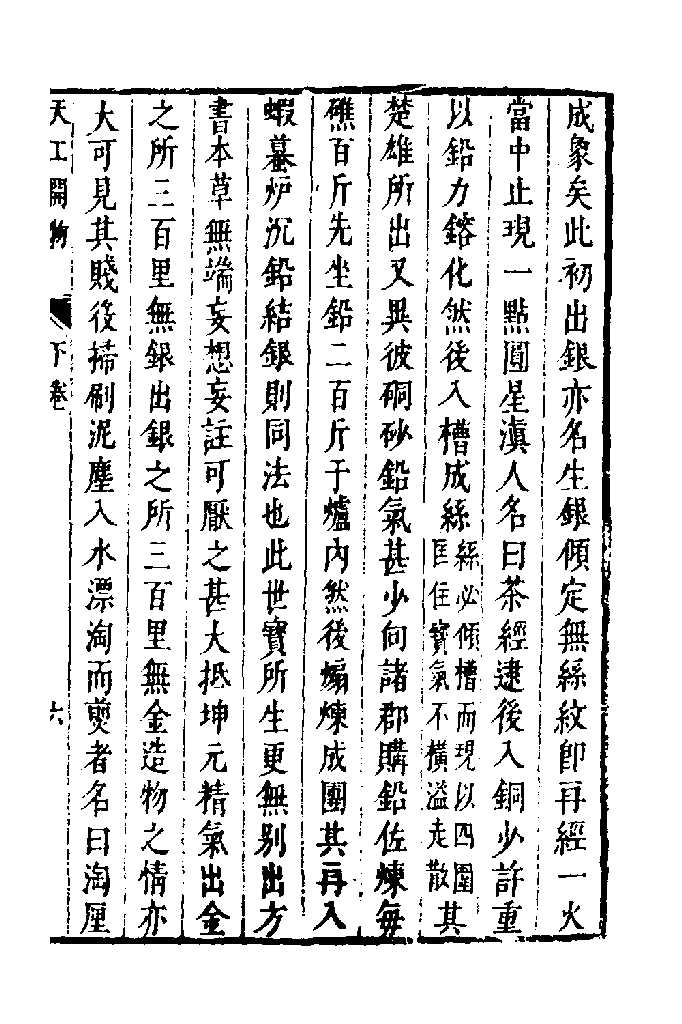 成象矣此初出銀亦名生銀傾定無絲紋卽再經一火
當中止現一點圓星滇人名曰茶經逮後入銅少許重
以鉛力鎔化然後入槽成絲
絲必傾槽而現以四圍
匡住寳氣不橫溢走散
其
楚雄所出又異彼硐砂鉛氣甚少向諸郡購鉛佐煉每
礁百斤先坐鉛二百斤于爐內然後煽煉成團其再入
蝦蟇炉沉鉛結銀則同法也此世寳所生更無别出方
書本草無端妄想妄註可厭之甚大抵坤元精氣出金
之所三百里無銀出銀之所三百里無金造物之情亦
大可見其賤後掃刷泥塵入水漂淘而煎者名曰淘厘
天工開物
下卷
六